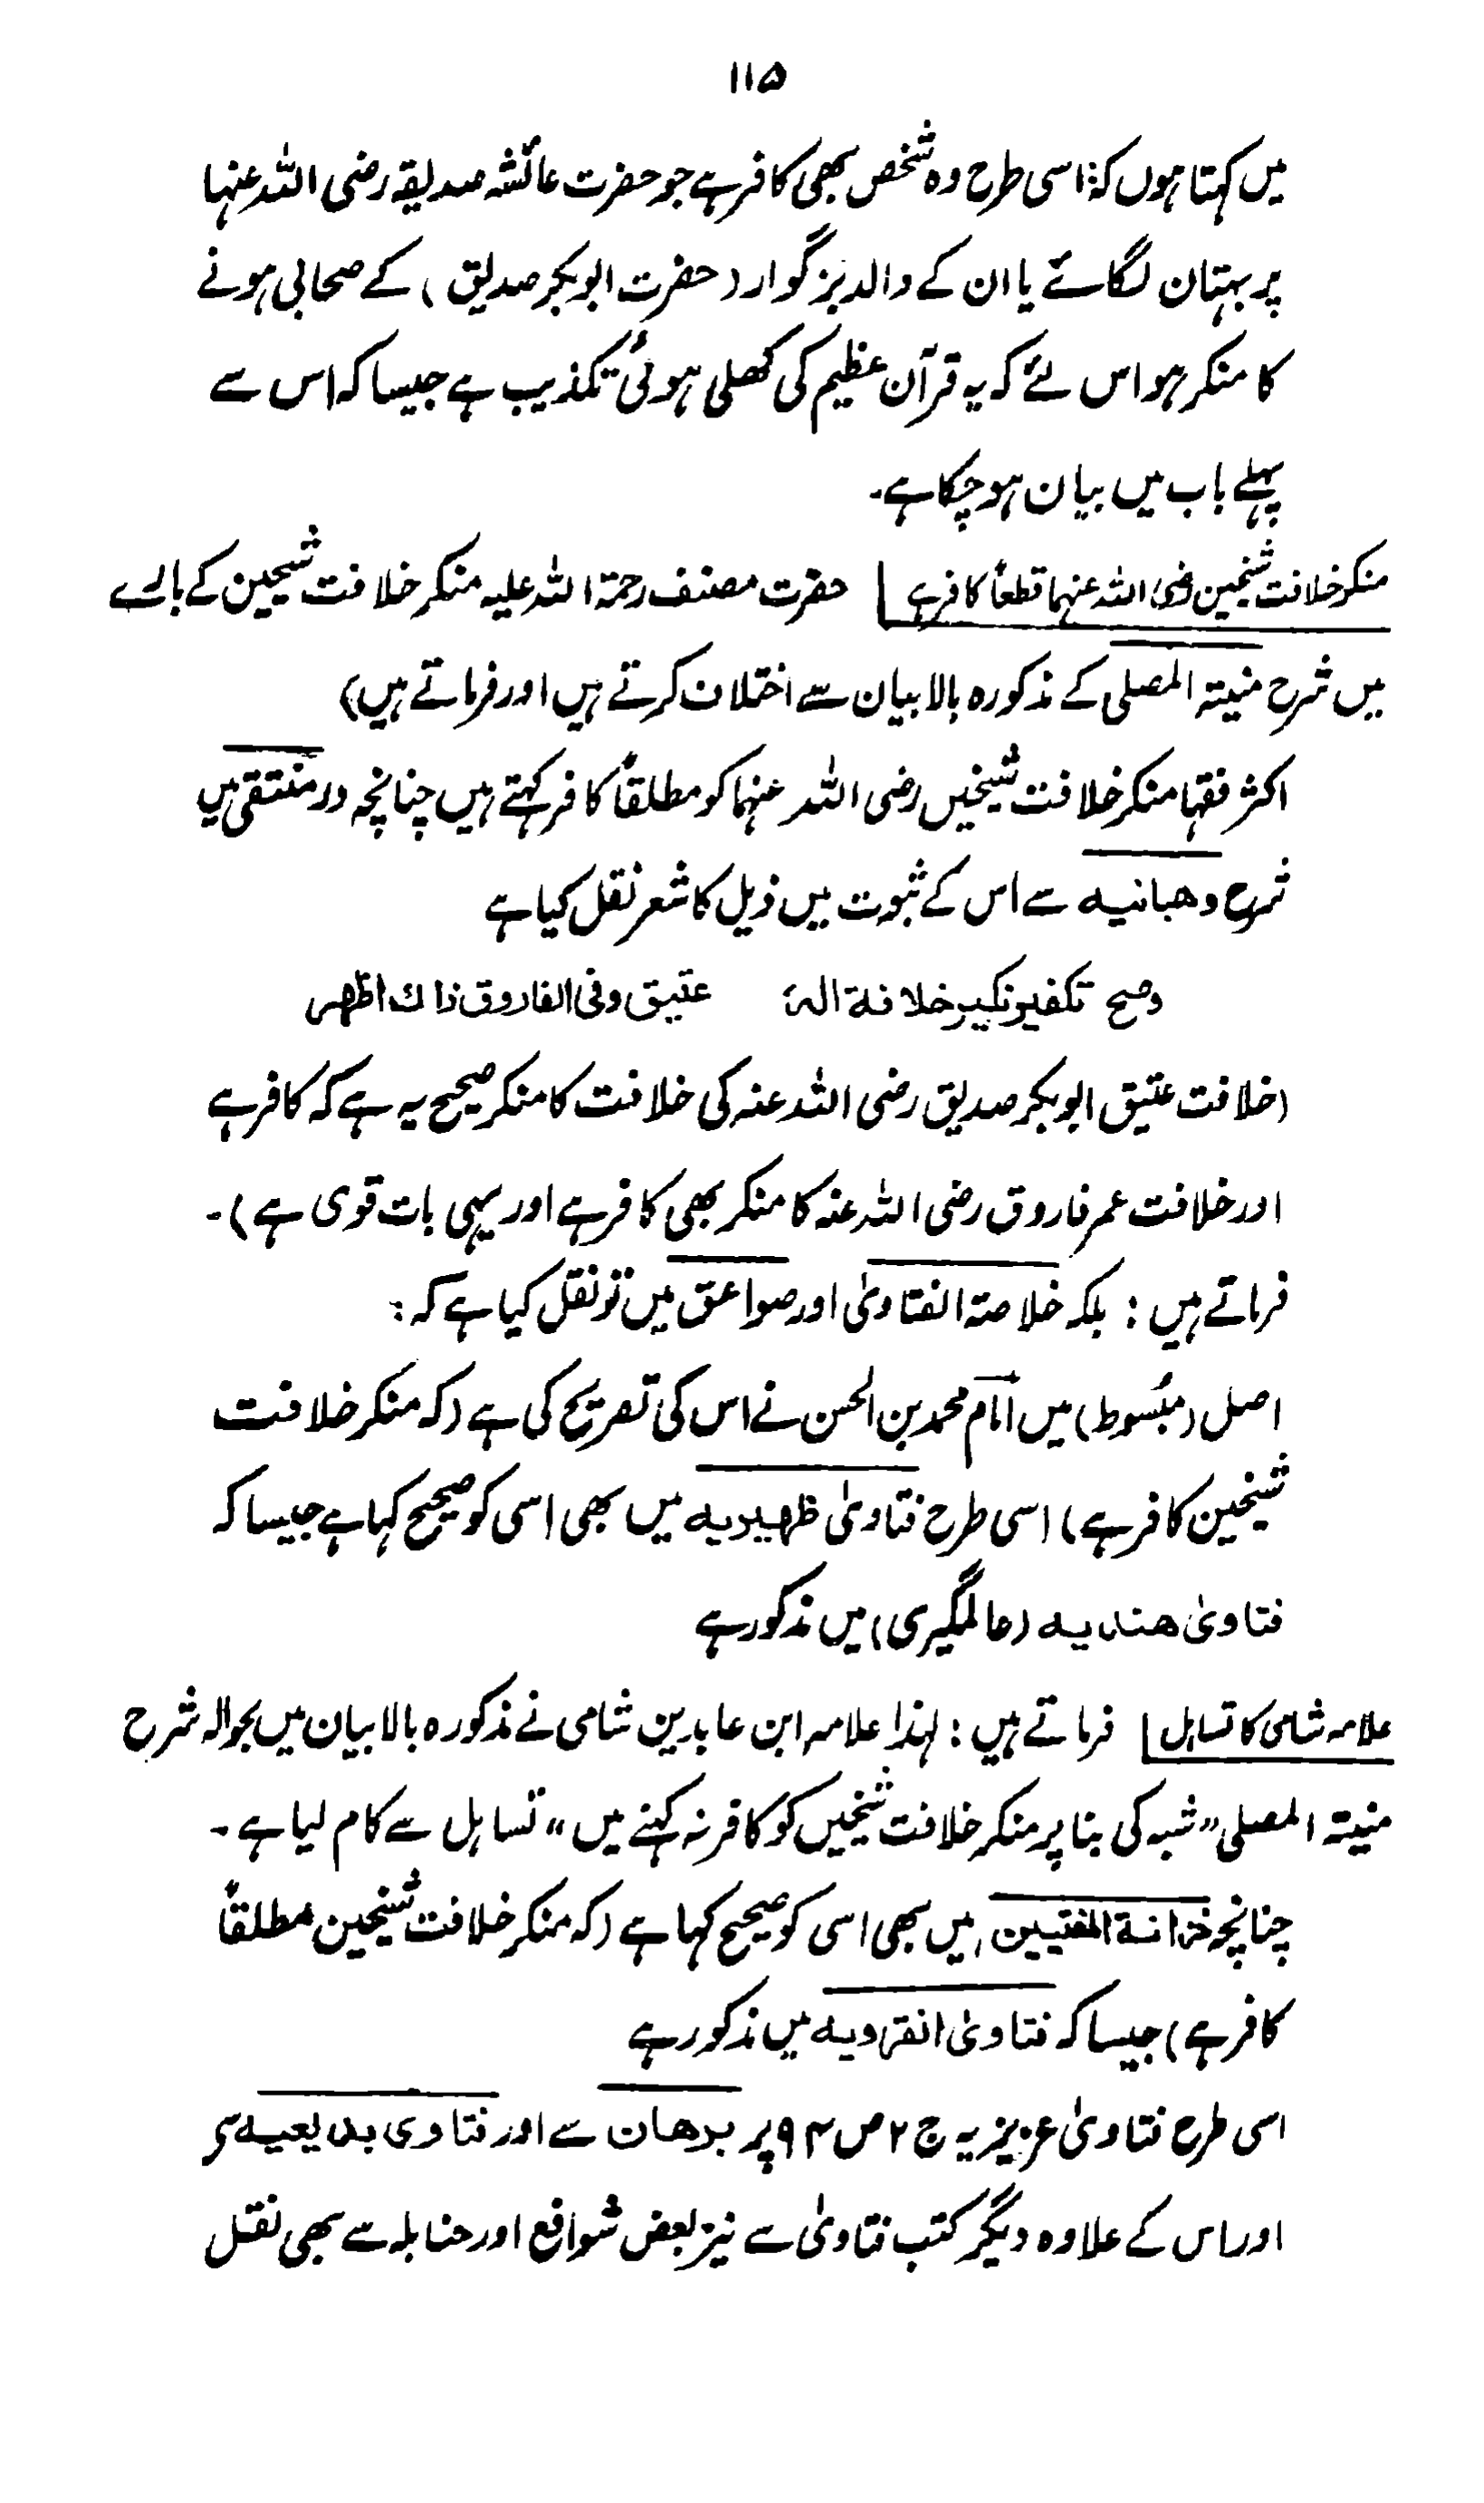 ۱۱۵
میں کہتا ہوں کہ: اسی طرح وہ شخص بھی کافر ہے جو حضرت عائشہ صدیقہ رضی اللہ عنہا
پر بہتان لگائے یا ان کے والد بزرگوار (حضرت ابوبکر صدیق) کے صحابی ہونے
کا منکر ہو اس لئے کہ یہ قرآن عظیم کی کھلی ہوئی تکذیب ہے جیسا کہ اس سے
پہلے باب میں بیان ہو چکا ہے۔
منکر خلافت شیخین رضی اللہ عنہما قطعاً کافر ہے حضرت مصنف رحمۃ اللہ علیہ منکر خلافت شیخین کے بارے
میں شرح منیۃ المصلی کے مذکورہ بالا بیان سے اختلاف کرتے ہیں اور فرماتے ہیں)
اکثر فقہا منکر خلافت شیخین رضی اللہ عنہما کو مطلقاً کافر کہتے ہیں چنانچہ در منتقی میں
شرح وھبانیہ سے اس کے ثبوت میں ذیل کا شعر نقل کیا ہے
وصح تکفیر نکیر خلافۃ الـ عتیق وفی الفاروق ذاك اظھر
(خلافت عتیق ابوبکر صدیق رضی اللہ عنہ کی خلافت کا منکر صحیح یہ ہے کہ کافر ہے
اور خلافت عمر فاروق رضی اللہ عنہ کا منکر بھی کافر ہے اور یہی بات قوی ہے)۔
فرماتے ہیں: بلکہ خلاصۃ الفتاویٰ اور صواعق میں تو نقل کیا ہے کہ:
اصل (مبسوط) میں امام محمد بن الحسن نے اس کی تصریح کی ہے (کہ منکر خلافت
شیخین کافر ہے) اسی طرح فتاویٰ ظھیریہ میں بھی اسی کو صحیح کہا ہے جیسا کہ
فتاویٰ ھندیہ (عالمگیری) میں مذکور ہے
علامہ شامی کا تساہل فرماتے ہیں: لہٰذا علامہ ابن عابدین شامی نے مذکورہ بالا بیان میں بحوالہ شرح
منیۃ المصلی "شبہ کی بنا پر منکر خلافت شیخین کو کافر نہ کہنے میں" تساہل سے کام لیا ہے۔
چنانچہ خزانۃ المفتیین میں بھی اسی کو صحیح کہا ہے (کہ منکر خلافت شیخین مطلقاً
کافر ہے) جیسا کہ فتاویٰ انقرویہ میں مذکور ہے
اسی طرح فتاویٰ عزیزیہ ج ۲ ص ۹۴ پر برھان سے اور فتاوی بدیعیہ
اور اس کے علاوہ دیگر کتب فتاویٰ سے نیز بعض شوافع اور حنابلہ سے بھی نقل